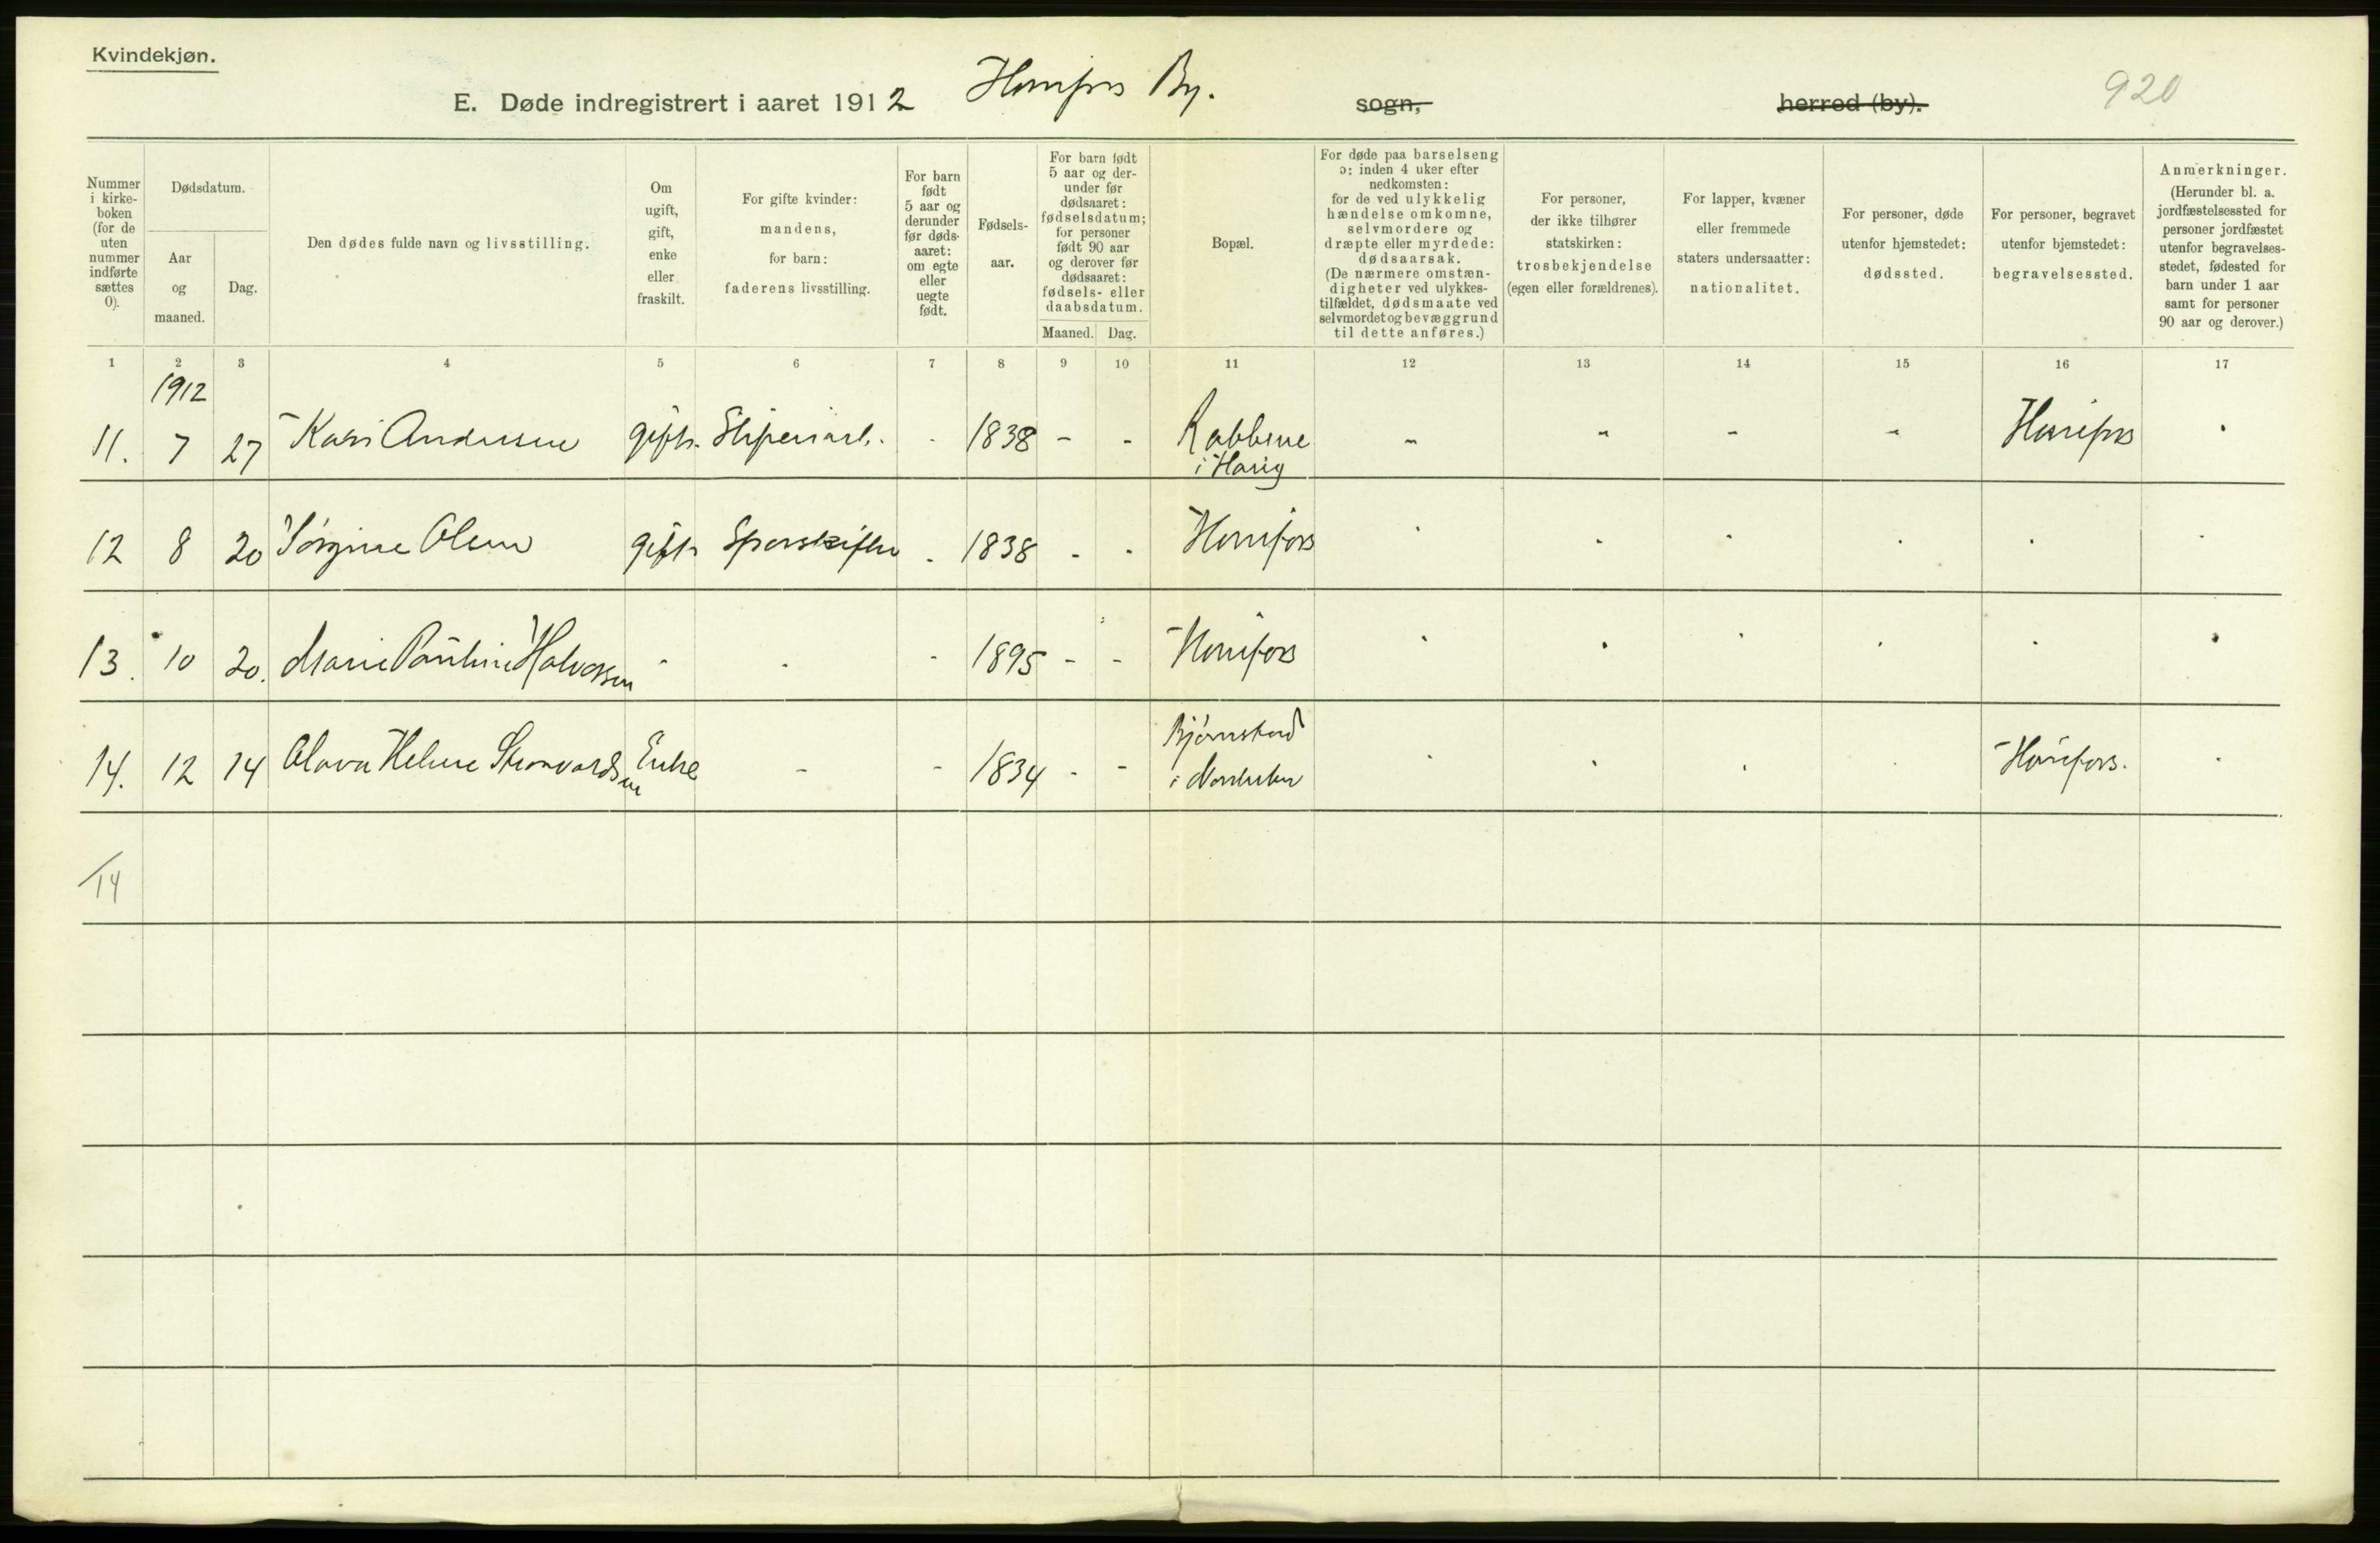 Kvindekjøn.
E. Døde indregistrert i aaret 1912 Hønefoss By. sogn, herred (by). 920
Nummer i kirke-boken (for de uten nummer indførte sættes 0).
Dødsdatum.
Aar og maaned.
Dag.
Den dødes fulde navn og livsstilling.
Om ugift, gift, enke eller fraskilt.
For gifte kvinder: mandens, for barn: faderens livsstilling.
For barn født 5 aar og derunder før døds-aaret: om egte eller uegte født.
Fødsels-aar.
For barn født 5 aar og der-under før dødsaaret: fødselsdatum; for personer født 90 aar og derover før dødsaaret: fødsels- eller daabsdatum.
Maaned. Dag.
Bopæl.
For døde paa barselseng ɔ: inden 4 uker efter nedkomsten: for de ved ulykkelig hændelse omkomne, selvmordere og dræpte eller myrdede: dødsaarsak. (De nærmere omstæn-digheter ved ulykkes-tilfældet, dødsmaate ved selvmordet og bevæggrund til dette anføres.)
For personer, der ikke tilhører statskirken: trosbekjendelse (egen eller forældrenes).
For lapper, kvæner eller fremmede staters undersaatter: nationalitet.
For personer, døde utenfor hjemstedet: dødssted.
For personer, begravet utenfor hjemstedet: begravelsessted.
Anmerkninger. (Herunder bl. a. jordfæstelsessted for personer jordfæstet utenfor begravelses-stedet, fødested for barn under 1 aar samt for personer 90 aar og derover.)
1 2 3 4 5 6 7 8 9 10 11 12 13 14 15 16 17
1912
11. 7 27 Kari Andersen gift. Sliperiarb. - 1838 - - Rabbene i Haug - - - - Hønefos -
12 8 20 Jørgine Olsen gift Sporskifter - 1838 - - Hønefos - - - - - -
13. 10 20. Marie Pauline Halvorsen - - - 1895 - - Hønefos - - - - - -
14. 12 14 Olava Helene Enke - - 1834 - - Bjørnstad i Norderhov - - - - Hønefos. -
14